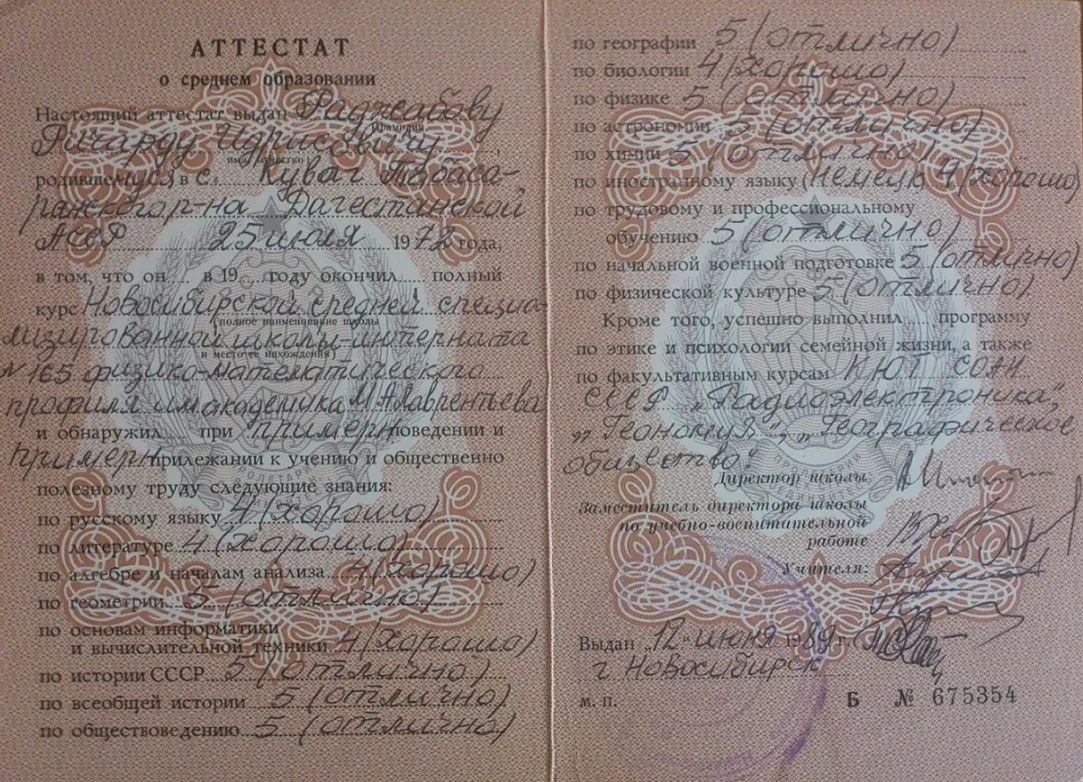 АТТЕСТАТ
о среднем образовании
Настоящий аттестат выдан Раджабову
(фамилия,
Ричарду Идрисовичу
имя, отчество)
родившемуся в с. Кувиг Табаса-
ранского р-на Дагестанской
АССР 25 июля 1972 года,
в том, что он в 19 году окончил полный
курс Новосибирской средней специа-
(полное наименование школы
лизированной школы-интерната
и место ее нахождения)
№ 165 физико-математического
профиля им академика М.А.Лаврентьева
и обнаружил при примерн поведении и
примерн прилежании к учению и общественно
полезному труду следующие знания:
по русскому языку 4 (хорошо)
по литературе 4 (хорошо)
по алгебре и началам анализа 4 (хорошо)
по геометрии 5 (отлично)
по основам информатики
и вычислительной техники 4 (хорошо)
по истории СССР 5 (отлично)
по всеобщей истории 5 (отлично)
по обществоведению 5 (отлично)
по географии 5 (отлично)
по биологии 4 (хорошо)
по физике 5 (отлично)
по астрономии 5 (отлично)
по химии 5 (отлично)
по иностранному языку (немецк) 4 (хорошо)
по трудовому и профессиональному
обучению 5 (отлично)
по начальной военной подготовке 5 (отлично)
по физической культуре 5 (отлично)
Кроме того, успешно выполнил программу
по этике и психологии семейной жизни, а также
по факультативным курсам КЮТ СОАН
СССР „Радиоэлектроника",
„Геономия", „Географическое
общество"
Директор школы
Заместитель директора школы
по учебно-воспитательной
работе
Учителя:
Выдан „12" июня 1989 г.
г Новосибирск
м. п. Б № 675354